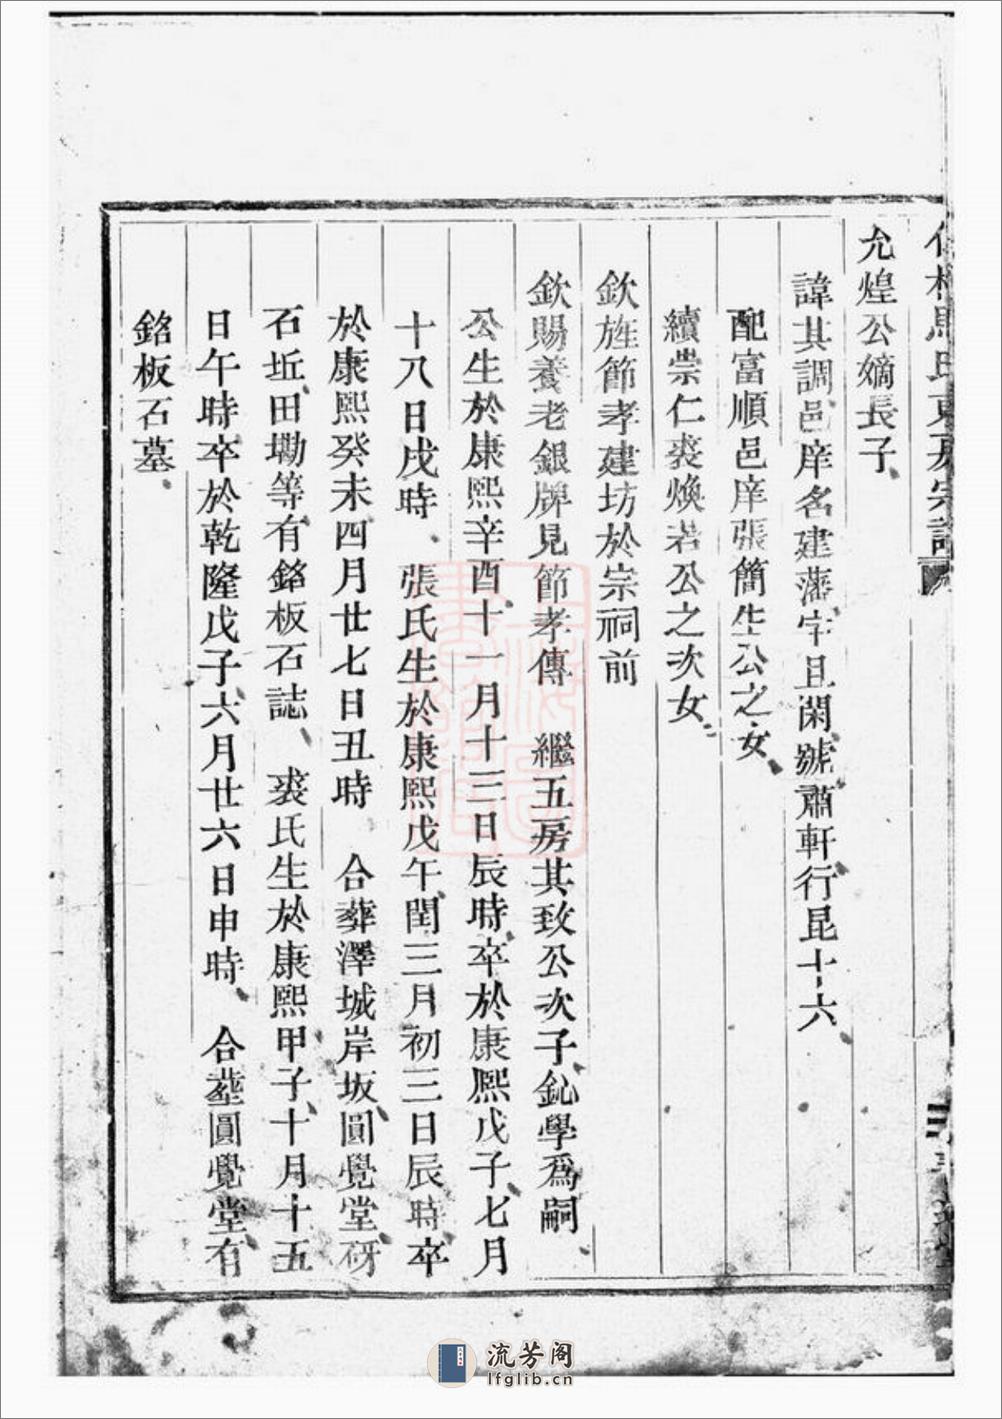 馬氏東房宗譜
允煌公嫡長子
諱其調邑庠名建藩字且閑號肅軒行昆十六
配富順邑庠張簡生公之女
續崇仁裘煥若公之次女
欽旌節孝建坊於宗祠前
欽賜養老銀牌見節孝傳 繼五房其致公次子鈊學爲嗣
公生於康熙辛酉十一月十三日辰時卒於康熙戊子七月
十八日戌時 張氏生於康熙戊午閏三月初三日辰時卒
於康熙癸未四月廿七日丑時 合葬澤城岸坂圓覺堂砑
石坵田墈等有銘板石誌 裘氏生於康熙甲子十月十五
日午時卒於乾隆戊子六月廿六日申時 合塟圓覺堂有
銘板石墓
流芳阁
lfglib.cn